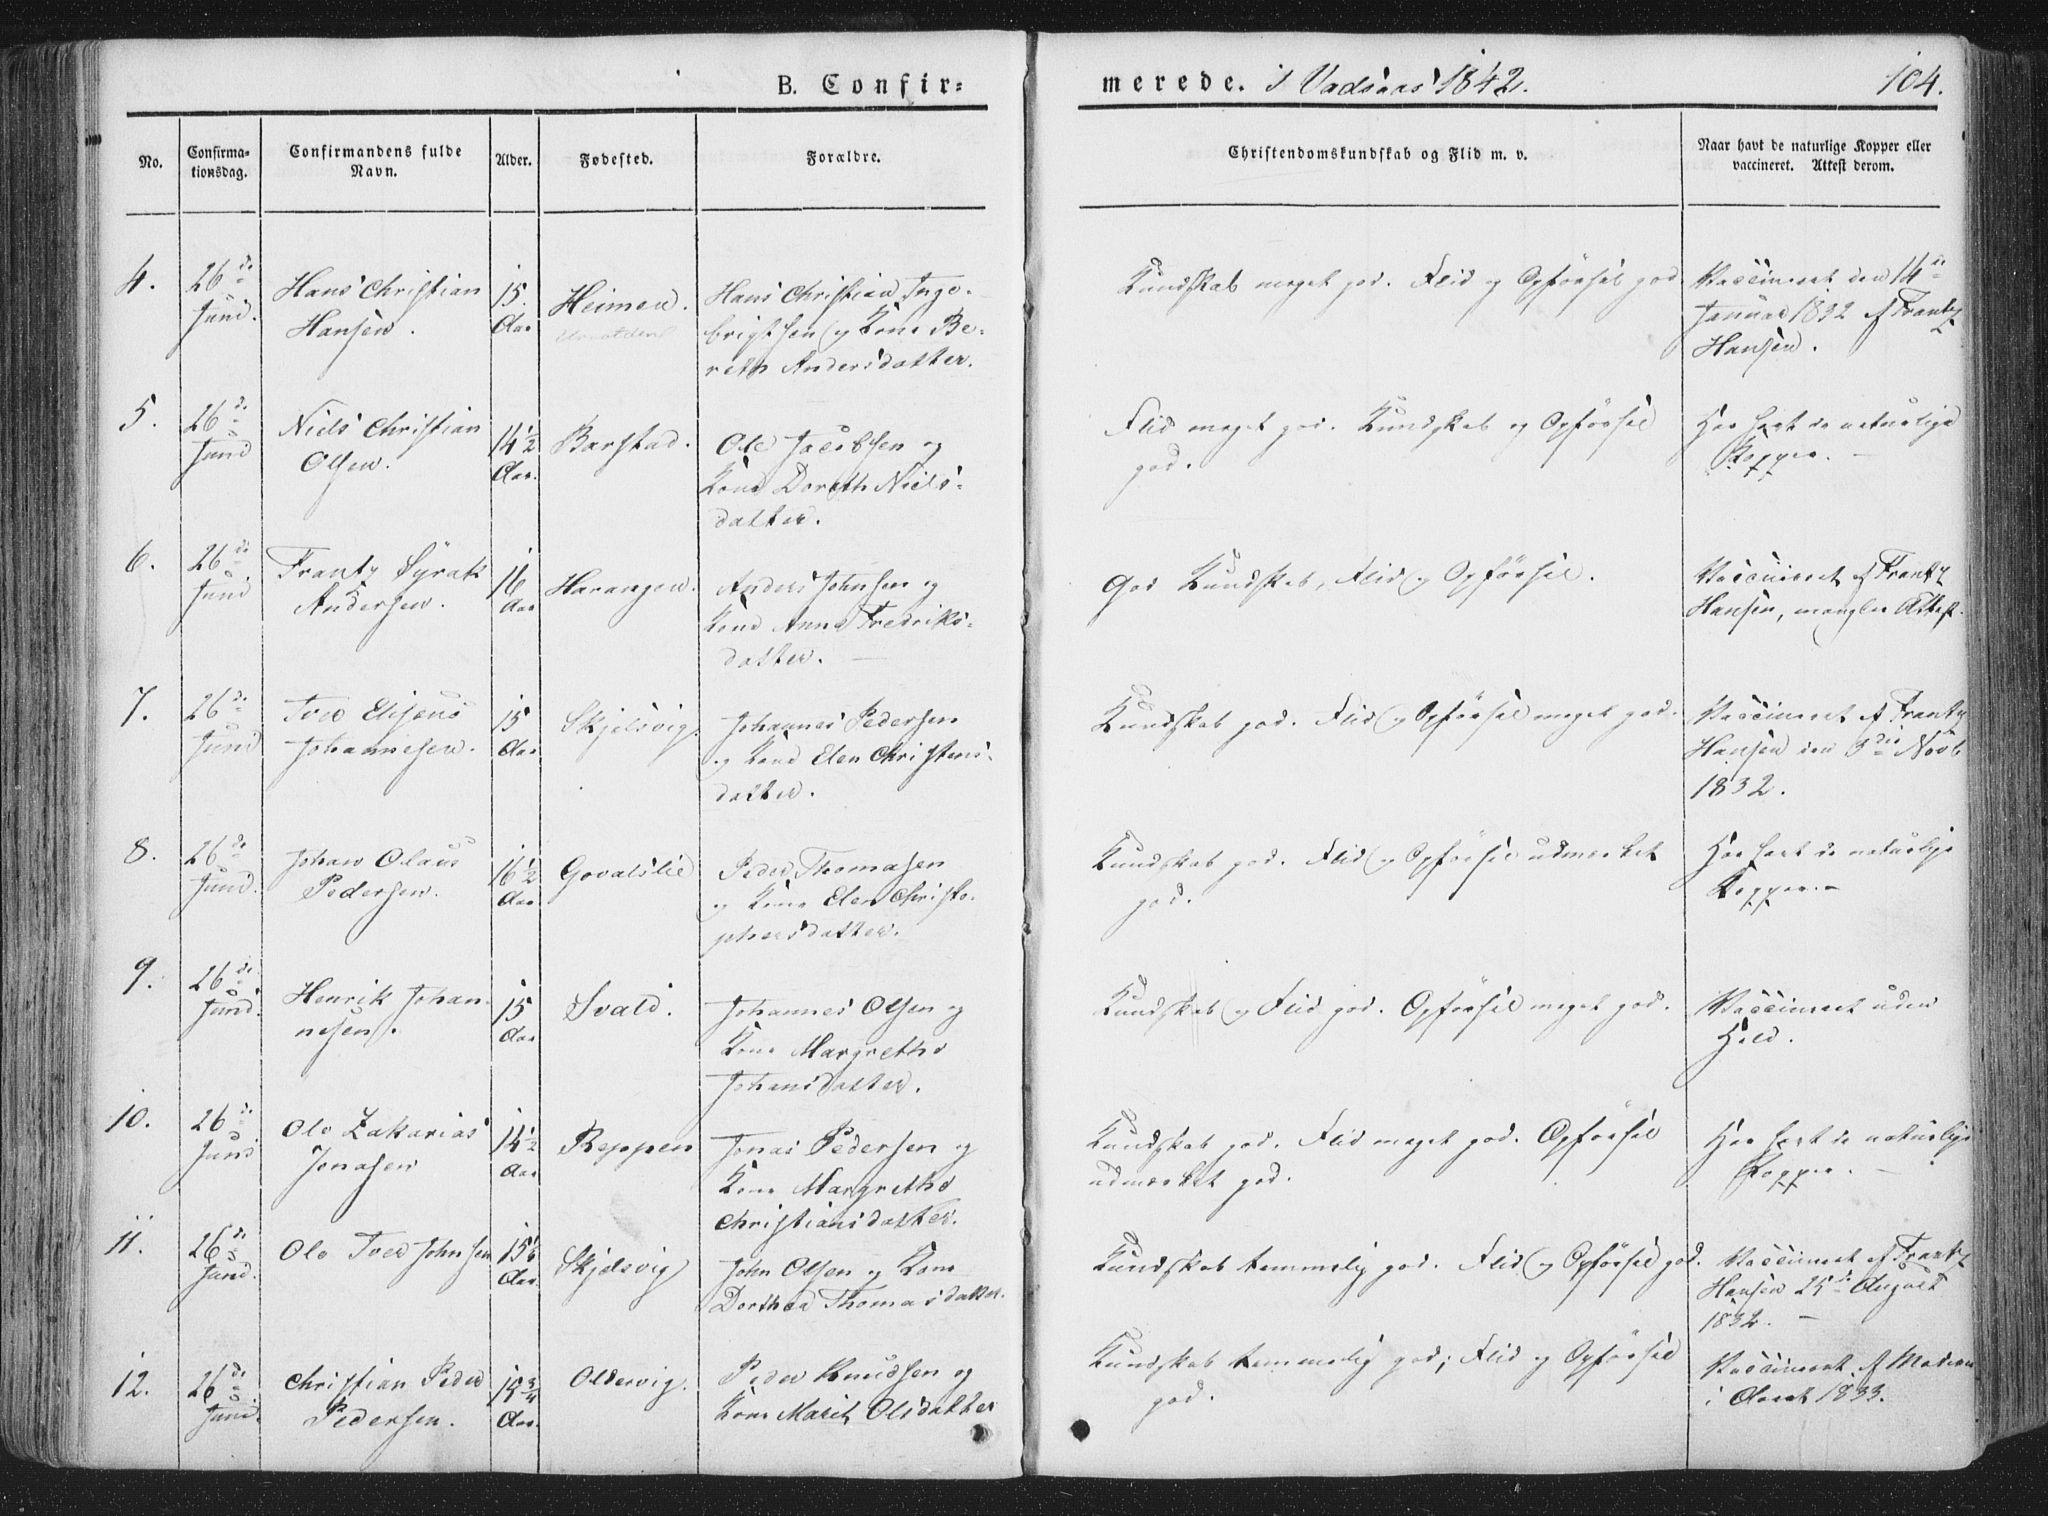 B. Confir=
merede. i Vadsaas 1842.
104.
No.
Confirma-
tionsdag.
Confirmandens fulde
Navn.
Alder.
Fødested.
Forældre.
Christendomskundskab og Flid m. v.
Naar havt de naturlige Kopper eller
vaccineret. Attest derom.
4.
26de
Juni.
Hans Christian
Hansen.
15.
Aar
Heimen.
Hans Christian Inge-
brigtsen og Kone Be-
reth Andersdatter.
Kundskab meget god. Flid og Opförsel god
Vaccineret den 14de
Januar 1832 af Frantz
Hansen.
5.
26de
Juni
Niels Christian
Olsen.
14½
Aar.
Barstad.
Ole Jacobsen og
Kone Doreth Niels-
datter.
Flid meget god. Kundskab og Opförsel
god.
Har havt de naturlige
Kopper. –
6.
26de
Juni
Frantz Sÿrak
Andersen.
16
Aar
Harangen.
Anders Johnsen og
Kone Anne Fredriks-
datter. –
God Kundskab, Flid og Opförsel.
Vaccineret af Frantz
Hansen, mangler Attest.
7.
26de
Juni
Tved Elisæus
Johannesen.
15
Aar
Skjelsvig
Johannes Pedersen
og Kone Elen Christens-
datter.
Kundskab god. Flid og Opförsel meget god.
Vaccineret af Frantz
Hansen den 5die Novb
1832.
8.
26de
Juni.
Johan Olaus
Pedersen.
16½
Aar
Govatslie
Peder Thomasen
og Kone Elen Christo-
phersdatter.
Kundskab god. Flid og Opförsel udmærket
god.
Har havt de naturlige
Kopper. –
9.
26de
Juni.
Henrik Johan-
nesen.
15
Aar
Svald.
Johannes Olsen og
Kone Margrethe
Johansdatter.
Kundskab og Flid god. Opförsel meget god.
Vaccineret uden
Held.
10.
26de
Juni
Ole Zakarias
Jonasen
14½
Aar
Reppen
Jonas Pedersen og
Kone Margrethe
Christiansdatter.
Kundskab god. Flid meget god. Opförsel
udmærket god.
Har havt de naturlige
Kopper. –
11.
26de
Juni.
Ole Tved Johnsen
15
Aar.
Skjelsvig
John Olsen og Kone
Dorthea Thomasdatter.
Kundskab temmelig god. Flid og Opförsel god.
Vaccineret af Frantz
Hansen 25de August
1832. –
12.
26de
Juni.
Christian Peder
Pedersen.
15¾
Aar.
Oldervig.
Peder Knudsen og
Kone Marit Olsdatter
Kundskab temmelig god; Flid og Opförsel
god.
Vaccineret af
i Aaret 1833.